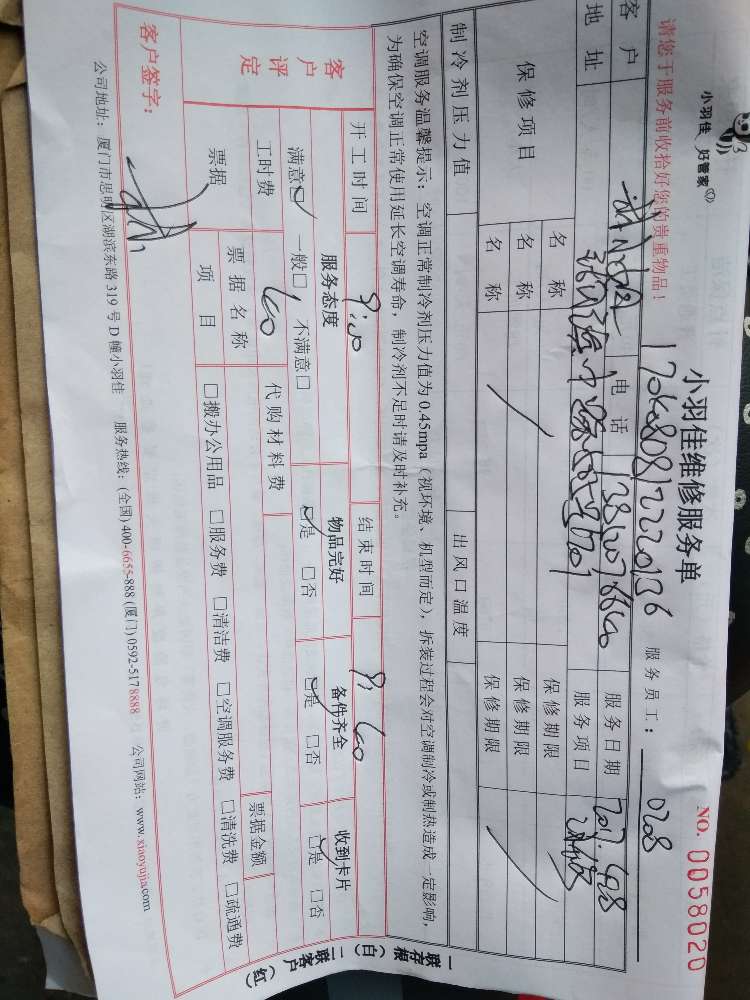 小羽佳 好管家
小羽佳维修服务单
NO. 0058020
请您于服务前收拾好您的贵重物品!
服务员工: 0208
客户 电话 服务日期
地址 服务项目
保修项目
名称 保修期限
名称 保修期限
名称 保修期限
制冷剂压力值 出风口温度
空调服务温馨提示:空调正常制冷剂压力值为0.45mpa(视环境、机型而定),拆装过程会对空调制冷或制热造成一定影响,
为确保空调正常使用延长空调寿命,制冷剂不足时请及时补充。
开工时间 结束时间
客户评定
服务态度 物品完好 备件齐全 收到卡片
满意☑ 一般□ 不满意□ ☑是 □否 ☑是 □否 ☑是 □否
工时费 代购材料费
票据 票据名称 票据金额
项目 □搬办公用品 □服务费 □清洁费 □空调服务费 □清洗费 □疏通费
客户签字:
公司地址:厦门市思明区湖滨东路319号D幢小羽佳 服务热线:(全国)400-6655-888 (厦门)0592-5178888 公司网站:www.xiaoyujia.com
一联存根(白) 二联客户(红)